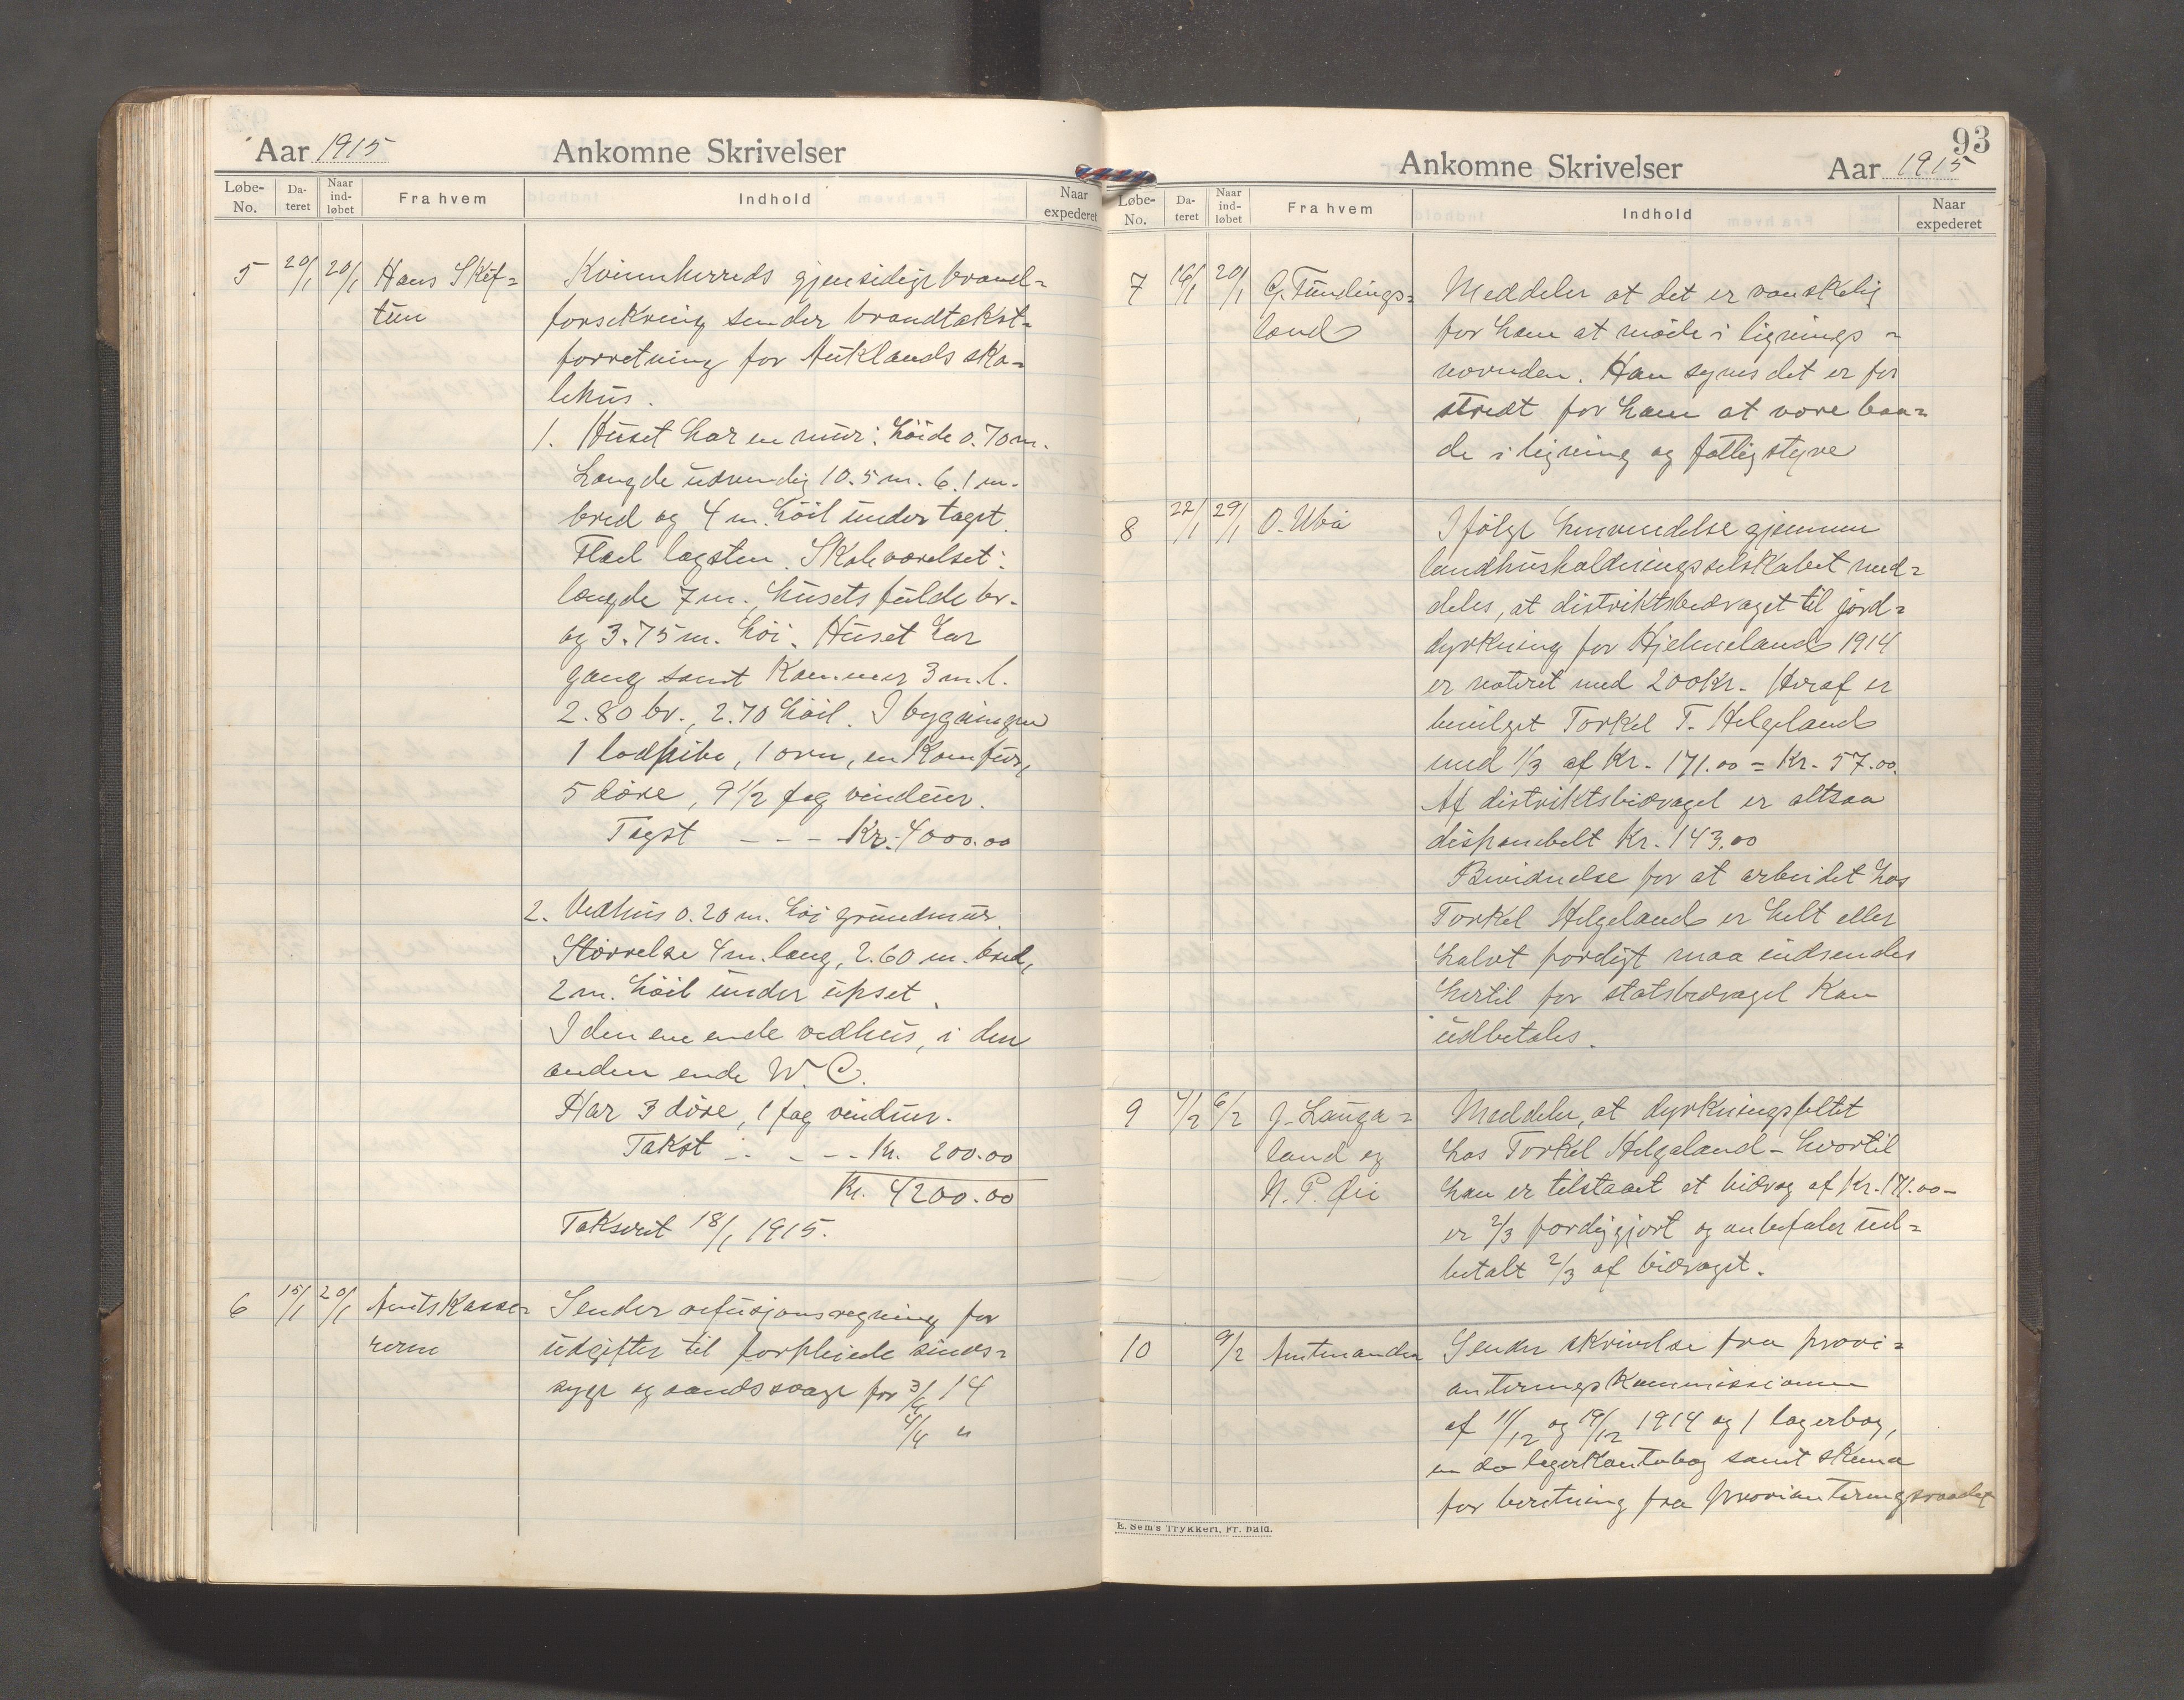 Aar 1915 Ankomne Skrivelser
Løbe-No. Da-teret Naar ind-løbet Fra hvem Indhold Naar expederet
5 20/1 20/1 Hans Skif= Kvinnherreds gjensidige brand=
tun forsikring sender brandtakst=
forretning for Auklands sko=
lehus.
1. Huset har en mur: høide 0.70 m.
Længde udvendig 10.5 m. 6.1 m.
bred og 4 m. høit under taget.
Flad lagsten. Skoleværelset:
længde 7 m. husets fulde br.
og 3.75 m. høi. Huset har
gang samt kammer 3 m. l.
2.80 br., 2.70 høit. I bygningen
1 lodpibe, 1 ovn, en komfur,
5 døre, 9 1/2 fag vinduer.
Tagst - - - Kr. 4000.00
2. Vedhus 0.20 m. høi grundmur.
Størrelse 4 m. lang, 2.60 m. bred,
2 m. høit under upset.
I den ene ende vedhus, i den
anden ende W.C.
Har 3 døre, 1 fag vinduer.
Takst - - - Kr. 200.00
Kr. 4200.00
Taksert 18/1 1915.
6 15/1 20/1 Amtskasse= Sender refusjonsregning for
reren udgifter til forpleiede sinds=
syge og aandssvage for 3/4 14
4/4 "
93
Ankomne Skrivelser Aar 1915
Løbe-No. Da-teret Naar ind-løbet Fra hvem Indhold Naar expederet
7 16/1 20/1 G. Tundings= Meddeler at det er vanskelig
land for ham at møde i lignings=
nævnden. Han synes det er for
stredt for ham at være baa=
de i ligning og fattigstyre
8 22/1 29/1 O. Ubø Ifølge henvendelse gjennem
landhusholdningsselskabet med=
deles, at distriktsbidraget til jord=
dyrkning for Hjelmeland 1914
er noteret med 200 kr. Heraf er
bevilget Torkel T. Helgeland
med 1/3 af Kr. 171.00 = Kr. 57.00.
Af distriktsbidraget er altsaa
disponebelt Kr. 143.00
Bevidnelse for at arbeidet hos
Torkel Helgeland er helt eller
halvt færdigt maa indsendes
hertil før statsbidraget kan
udbetales.
9 4/2 6/2 J. Langa= Meddeler, at dyrkningsfeltet
land og hos Torkel Helgeland - hvortil
N. P. Øie han er tilstaaet et bidrag af Kr. 171.00 -
er 2/3 færdiggjort og anbefaler ud=
betalt 2/3 af bidraget.
10 9/2 Amtmanden Sender skrivelse fra provi=
anteringskommissionen
af 11/12 og 19/12 1914 og 1 lagerbog,
en do lagerkontobog samt skema
for beretning fra provianteringsraadet
E. Sem's Trykkeri, Fr.hald.